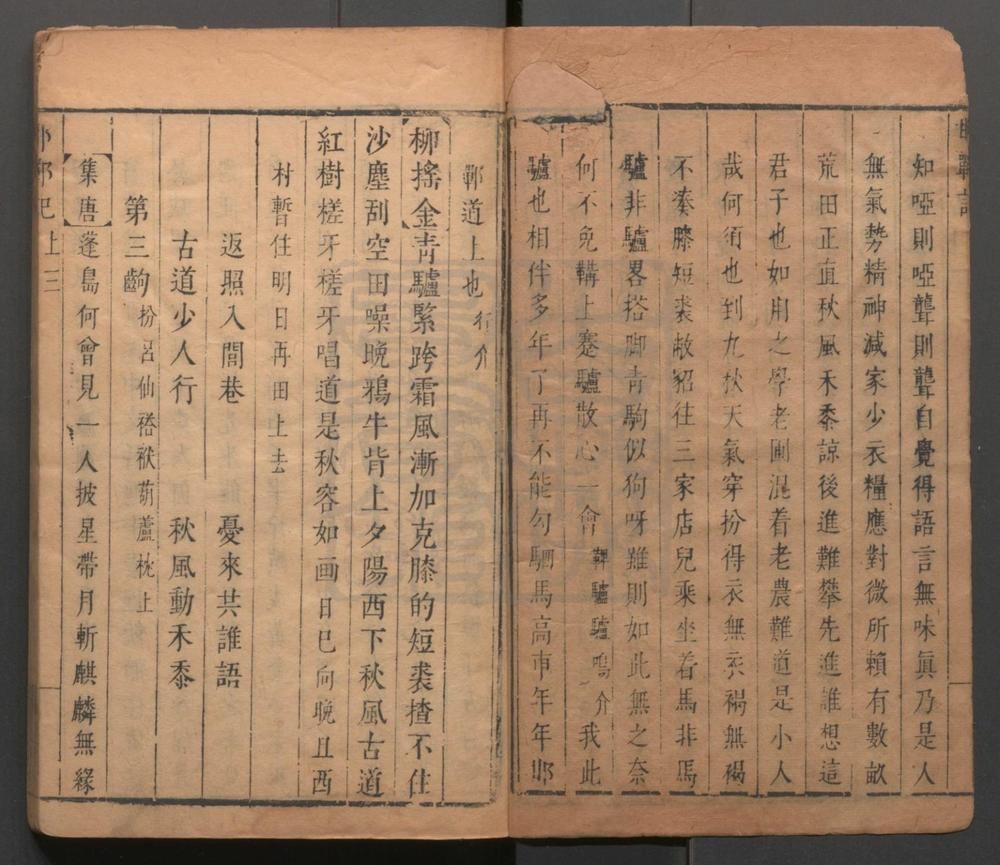 邯鄲記
知啞則啞聾則聾自覺得語言無味真乃是人
無氣勢精神減家少衣糧應對微所賴有數畝
荒田正直秋風禾黍諒後進難攀先進誰想這
君子也如用之學老圃混着老農難道是小人
哉何須也到九秋天氣穿扮得衣無衣褐無褐
不湊膝短裘敝貂往三家店兒乘坐着馬非馬
驢非驢畧搭脚青駒似狗呀雖則如此無之奈
何不免鞲上蹇驢散心一會鞲驢驢鳴介我此
驢也相伴多年了再不能勾駟馬高車年年邯
鄲道上也行介
【柳搖金】青驢緊跨霜風漸加克膝的短裘揸不住
沙塵刮空田噪晚鴉牛背上夕陽西下秋風古道
紅樹槎牙槎牙唱道是秋容如画日已向晚且西
村暫住明日再田上去
返照入閭巷　憂來共誰語
古道少人行　秋風動禾黍
第三齣扮呂仙褡袱葫蘆枕上
【集唐】蓬島何曾見一人披星帶月斬麒麟無緣
邯鄲記　上　三